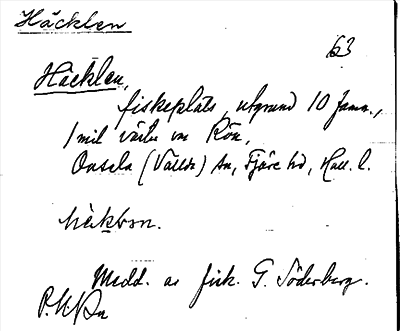 Häcklen
63
Häcklen,
fiskeplats, utgrund 10 famn.,
1 mil väster om Rön,
Onsala (Vallda) sn, Fjäre hd, Hall. l.
Medd. av fisk. G. Söderberg.